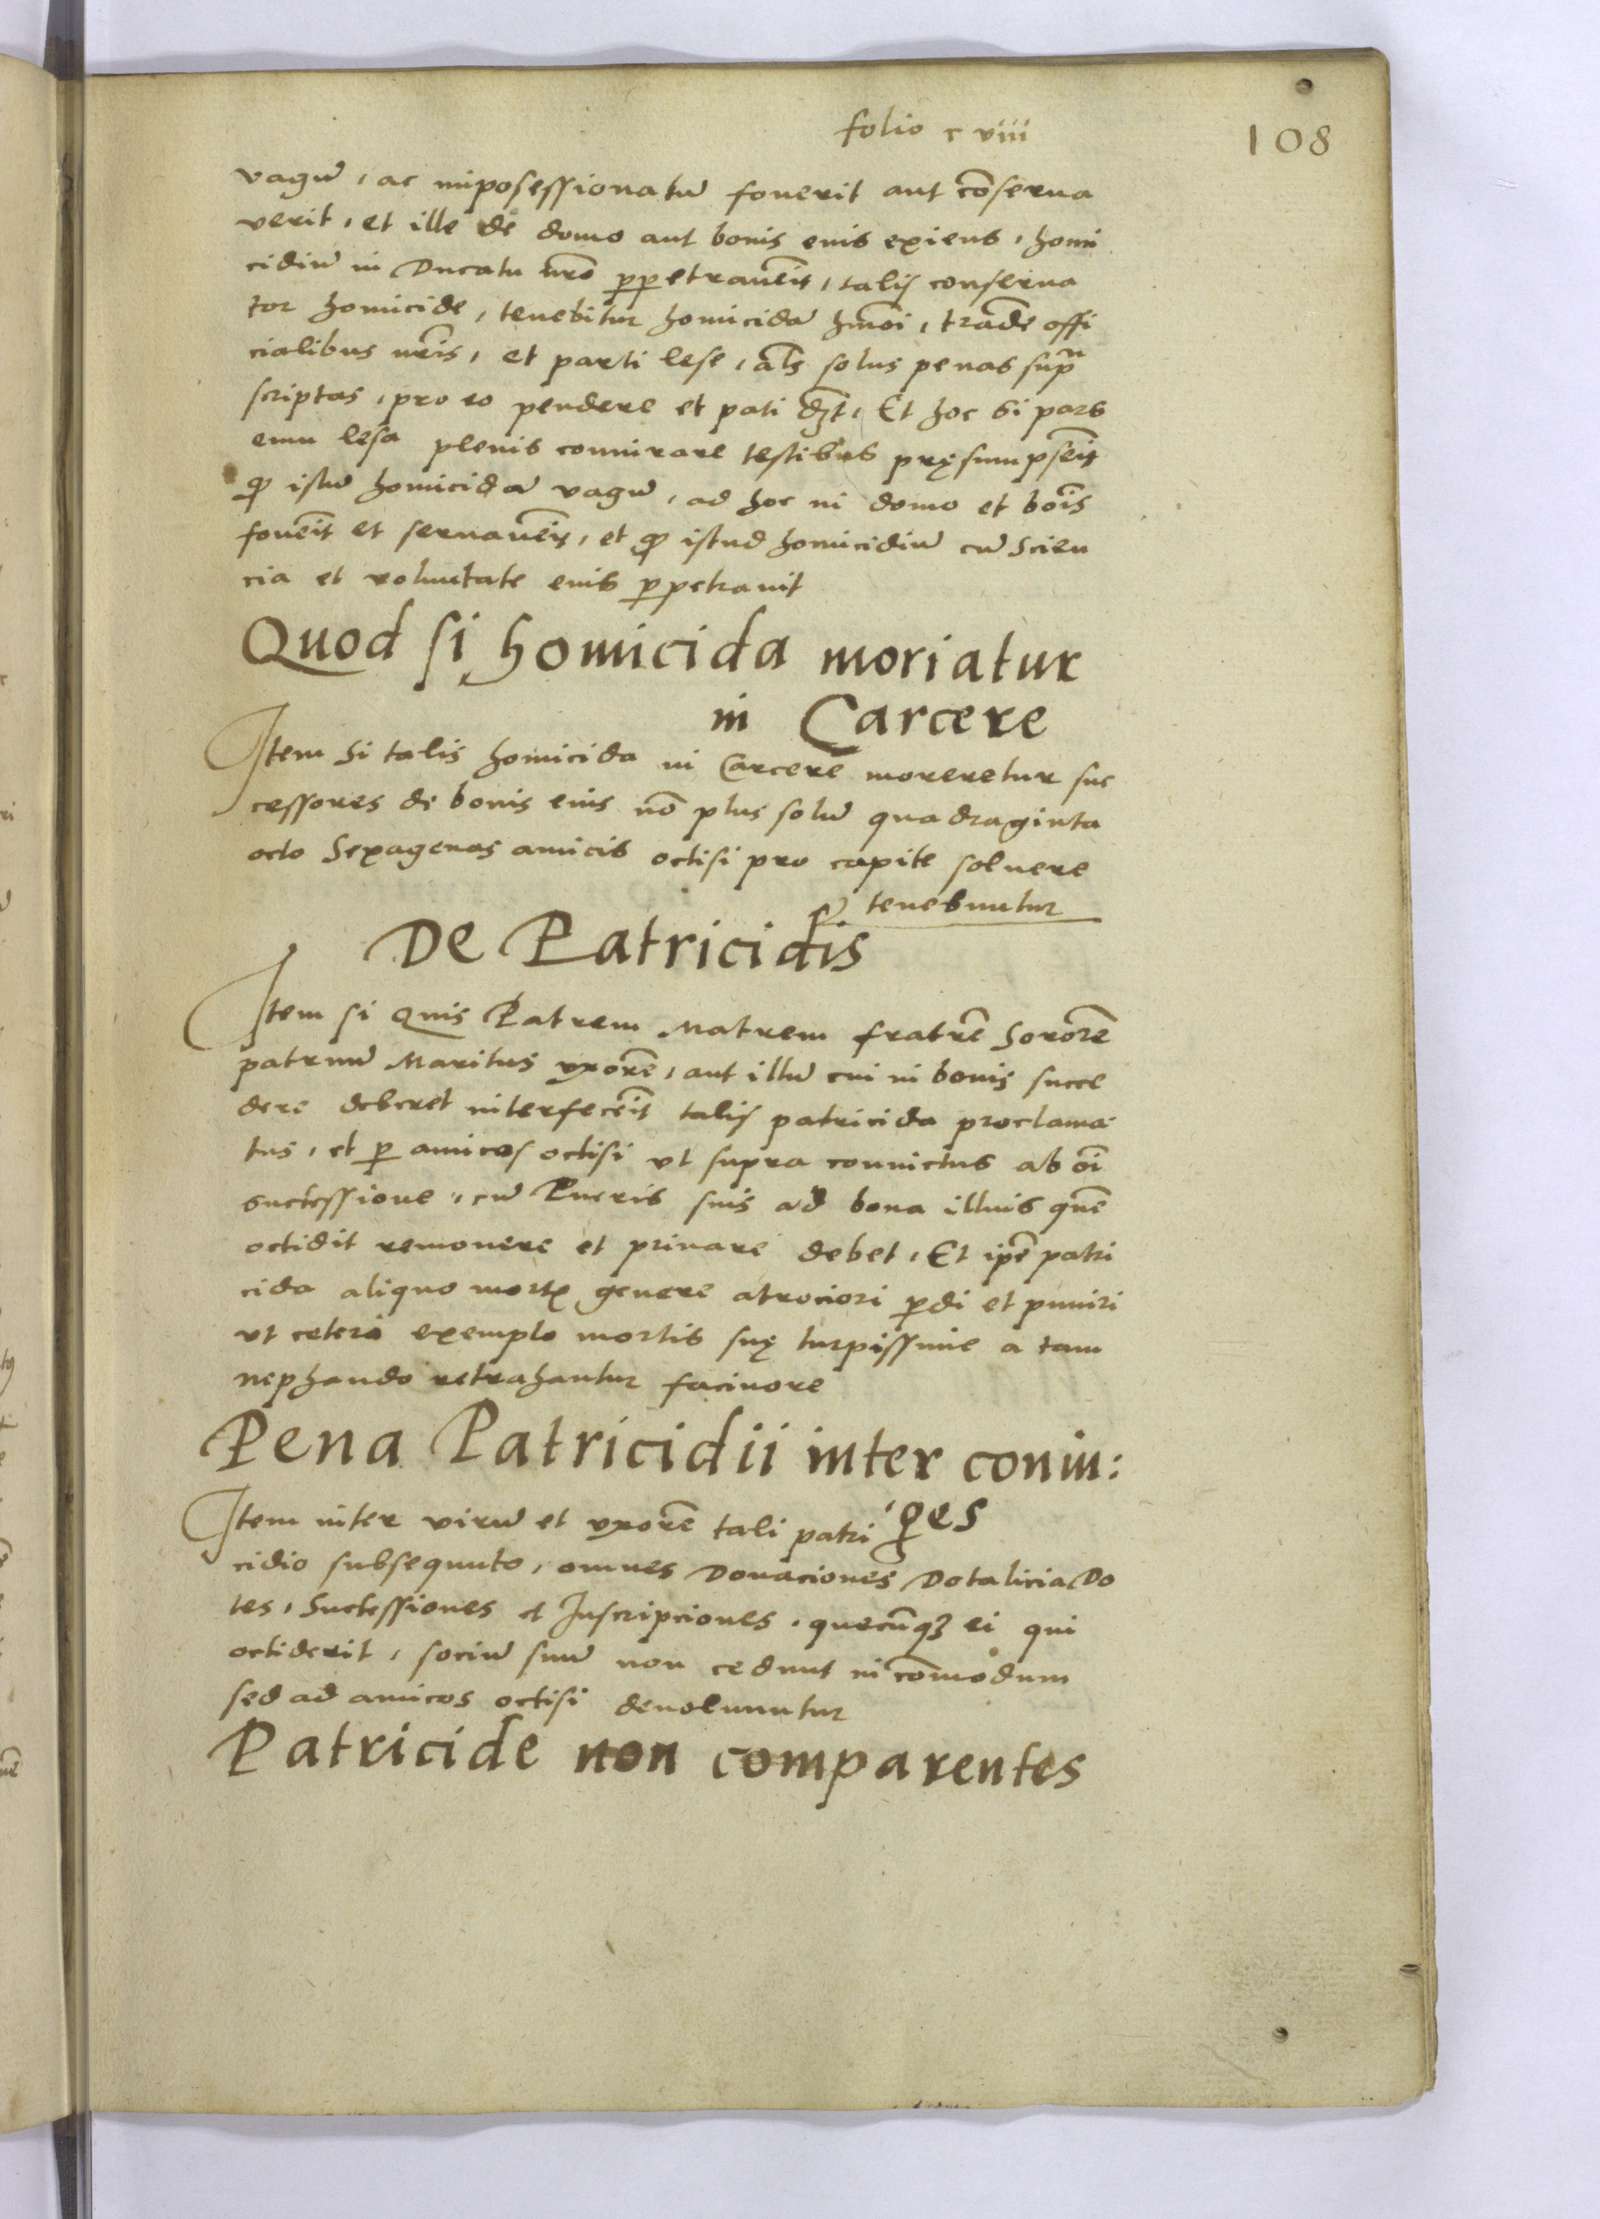 folio c viii
108
vagū, ac inposessionatū fouerit aut cōserua
verit, et ille de domo aut bonis euis exiens, homi
cidiū in Ducatu nr̄o ꝑpetrauer̄it, talis conserua
tor homicide, tenebitur homicidā hmōi, tradē offi
cialibus nr̄is, et parti lese, al̄s solus penas supͣ
scriptas, pro eo pendere et pati d₃t, Et hoc si pars
eum lesa plenis conuirare testibus pręsumpser̄it
ꝙ istū homicidā vagū, ad hoc in domo et boīs
fouer̄it et seruauer̄it, et ꝙ istud homicidiū cū Scien
cia et voluntate euis ꝑpetrauit
Quod si homicida moriatur
in Carcere
Item Si talis homicida in Carcere moreretur suc
cessores de bonis eius nō plus solū quadraginta
octo Sexagenas amicis octisi pro capite soluere
tenebuntur
De Patricidis
Item si Quis Patrem Matrem fratrē Sororē
patruū Maritus vxorē, aut illū cui in bonis succe
dere deberet interfecer̄it talis patricida proclama
tus, et ꝑ amicos octisi vt supra conuictus ab oī
suctessione, cū Pueris suis ad bona illuis quē
octidit remouere et priuare debet, Et ip̄e patri
cida aliquo mortꝭ genere atrociori ꝑdi et puniri
vt ceteri exemplo mortis suę turpissime a tam
nephando retrahantur facinore
Pena Patricidii inter coniu:
ges
Item inter virū et vxorē tali patri
cidio subsequuto, omnes Donaciones Dotalicia Do
tes, Suctessiones et Inscripciones, quecūq₃ ei qui
octiderit, sociū suū non cedunt in cōmodum
sed ad amicos octisi deuoluuntur
Patricide non comparentes